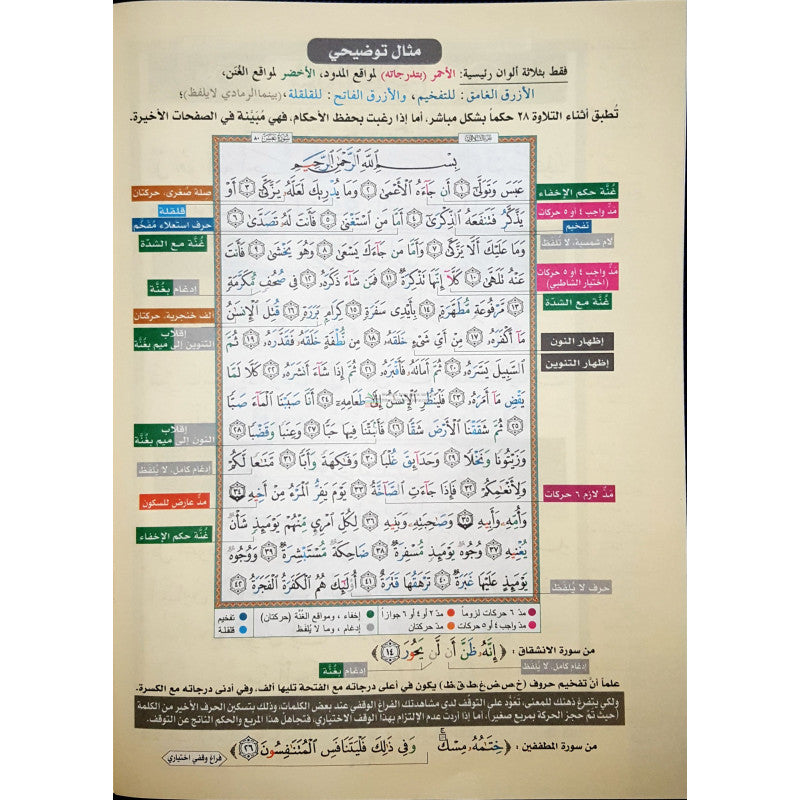 مثال توضيحي
فقط بثلاثة ألوان رئيسية: الأحمر (بتدرجاته) لمواقع المدود، الأخضر لمواقع الغُنَن،
الأزرق الغامق: للتفخيم، والأزرق الفاتح: للقلقلة، (بينما الرمادي لا يلفظ)؛
تُطبق أثناء التلاوة ٢٨ حكماً بشكل مباشر، أما إذا رغبت بحفظ الأحكام، فهي مُبَيّنة في الصفحات الأخيرة.
سُورَةُ عَبَسَ ٨٠
بِسْمِ اللَّهِ الرَّحْمَٰنِ الرَّحِيمِ
عَبَسَ وَتَوَلَّىٰ ﴿١﴾ أَن جَاءَهُ الْأَعْمَىٰ ﴿٢﴾ وَمَا يُدْرِيكَ لَعَلَّهُ يَزَّكَّىٰ ﴿٣﴾ أَوْ
يَذَّكَّرُ فَتَنفَعَهُ الذِّكْرَىٰ ﴿٤﴾ أَمَّا مَنِ اسْتَغْنَىٰ ﴿٥﴾ فَأَنتَ لَهُ تَصَدَّىٰ ﴿٦﴾
وَمَا عَلَيْكَ أَلَّا يَزَّكَّىٰ ﴿٧﴾ وَأَمَّا مَن جَاءَكَ يَسْعَىٰ ﴿٨﴾ وَهُوَ يَخْشَىٰ ﴿٩﴾ فَأَنتَ
عَنْهُ تَلَهَّىٰ ﴿١٠﴾ كَلَّا إِنَّهَا تَذْكِرَةٌ ﴿١١﴾ فَمَن شَاءَ ذَكَرَهُ ﴿١٢﴾ فِي صُحُفٍ مُّكَرَّمَةٍ
﴿١٣﴾ مَّرْفُوعَةٍ مُّطَهَّرَةٍ ﴿١٤﴾ بِأَيْدِي سَفَرَةٍ ﴿١٥﴾ كِرَامٍ بَرَرَةٍ ﴿١٦﴾ قُتِلَ الْإِنسَٰنُ
مَا أَكْفَرَهُ ﴿١٧﴾ مِنْ أَيِّ شَيْءٍ خَلَقَهُ ﴿١٨﴾ مِن نُّطْفَةٍ خَلَقَهُ فَقَدَّرَهُ ﴿١٩﴾ ثُمَّ
السَّبِيلَ يَسَّرَهُ ﴿٢٠﴾ ثُمَّ أَمَاتَهُ فَأَقْبَرَهُ ﴿٢١﴾ ثُمَّ إِذَا شَاءَ أَنشَرَهُ ﴿٢٢﴾ كَلَّا لَمَّا
يَقْضِ مَا أَمَرَهُ ﴿٢٣﴾ فَلْيَنظُرِ الْإِنسَٰنُ إِلَىٰ طَعَامِهِ ﴿٢٤﴾ أَنَّا صَبَبْنَا الْمَاءَ صَبًّا
﴿٢٥﴾ ثُمَّ شَقَقْنَا الْأَرْضَ شَقًّا ﴿٢٦﴾ فَأَنبَتْنَا فِيهَا حَبًّا ﴿٢٧﴾ وَعِنَبًا وَقَضْبًا ﴿٢٨﴾
وَزَيْتُونًا وَنَخْلًا ﴿٢٩﴾ وَحَدَائِقَ غُلْبًا ﴿٣٠﴾ وَفَٰكِهَةً وَأَبًّا ﴿٣١﴾ مَّتَٰعًا لَّكُمْ
وَلِأَنْعَٰمِكُمْ ﴿٣٢﴾ فَإِذَا جَاءَتِ الصَّاخَّةُ ﴿٣٣﴾ يَوْمَ يَفِرُّ الْمَرْءُ مِنْ أَخِيهِ ﴿٣٤﴾
وَأُمِّهِ وَأَبِيهِ ﴿٣٥﴾ وَصَٰحِبَتِهِ وَبَنِيهِ ﴿٣٦﴾ لِكُلِّ امْرِئٍ مِّنْهُمْ يَوْمَئِذٍ شَأْنٌ
يُغْنِيهِ ﴿٣٧﴾ وُجُوهٌ يَوْمَئِذٍ مُّسْفِرَةٌ ﴿٣٨﴾ ضَاحِكَةٌ مُّسْتَبْشِرَةٌ ﴿٣٩﴾ وَوُجُوهٌ
يَوْمَئِذٍ عَلَيْهَا غَبَرَةٌ ﴿٤٠﴾ تَرْهَقُهَا قَتَرَةٌ ﴿٤١﴾ أُولَٰئِكَ هُمُ الْكَفَرَةُ الْفَجَرَةُ ﴿٤٢﴾
غُنَّة حكم الإخفاء
مدّ واجب ٤ أو ٥ حركات
تفخيم
لام شمسية، لا تلفظ
مدّ واجب ٤ أو ٥ حركات
(اختيار الشاطبي)
غُنَّة مع الشدّة
إظهار النون
إظهار التنوين
مدّ لازم ٦ حركات
حرف لا يُلفظ
صلة صُغرى، حركتان
قلقلة
حرف استعلاء مُفخَّم
غُنَّة مع الشدّة
إدغام بغُنَّة
ألف خنجرية، حركتان
إقلاب
التنوين إلى ميم بغُنَّة
إقلاب
النون إلى ميم بغُنَّة
إدغام كامل، لا يُلفظ
مدّ عارض للسكون
غُنَّة حكم الإخفاء
مدّ ٦ حركات لزوماً مدّ ٢ أو ٤ أو ٦ جوازاً إخفاء، ومواقع الغُنَّة (حركتان) تفخيم
مدّ واجب ٤ أو ٥ حركات مدّ حركتان إدغام، وما لا يُلفظ قلقلة
من سورة الانشقاق: ﴿إِنَّهُ ظَنَّ أَن لَّن يَحُورَ ﴿١٤﴾﴾
إدغام كامل، لا يُلفظ إدغام بغُنَّة
علماً أنّ تفخيم حروف (خ.ص.ض.غ.ط.ق.ظ) يكون في أعلى درجاته مع الفتحة تليها ألف، وفي أدنى درجاته مع الكسرة.
ولكي يتفرغ ذهنك للمعنى، تعوَّد على التوقف لدى مشاهدتك الفراغ الوقفي عند بعض الكلمات، وذلك بتسكين الحرف الأخير من الكلمة
(حيث تمّ حجز الحركة بمربع صغير)، أما إذا أردت عدم الإلتزام بهذا الوقف الاختياري، فتجاهل هذا المربع والحكم الناتج عن التوقف.
من سورة المطففين: ﴿خِتَٰمُهُ مِسْكٌ وَفِي ذَٰلِكَ فَلْيَتَنَافَسِ الْمُتَنَافِسُونَ ﴿٢٦﴾﴾ فراغ وقفي اختياري